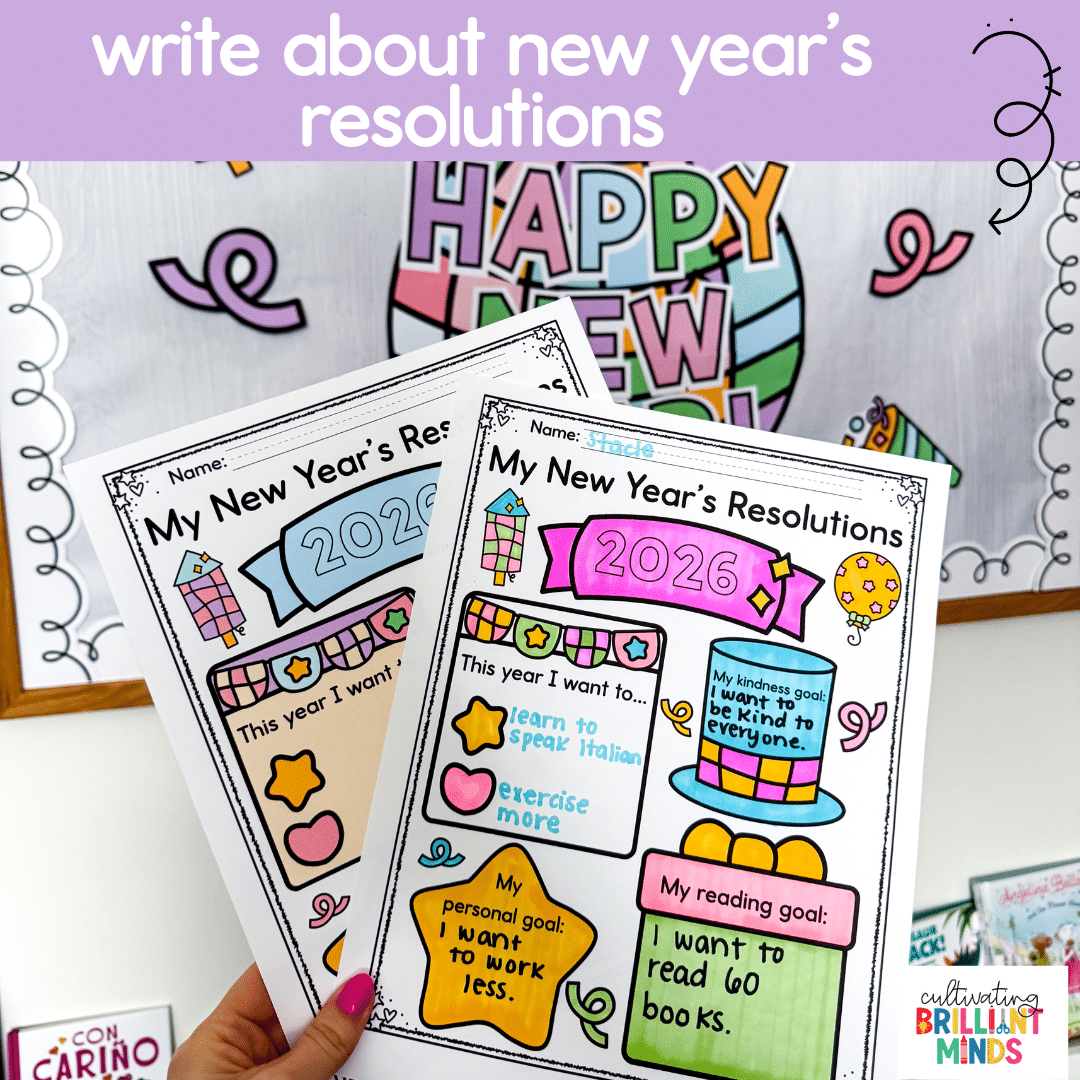 write about new year's
resolutions
HAPPY
NEW
Name:
My New Year's Resolutions
2026
This year I want
Name: Stacie
My New Year's Resolutions
2026
This year I want to...
learn to
speak Italian
exercise
more
My kindness goal:
I want to
be kind to
everyone.
My
personal goal:
I want
to work
less.
My reading goal:
I want to
read 60
books.
CON
CARIÑO
cultivating
BRILLIANT
MINDS